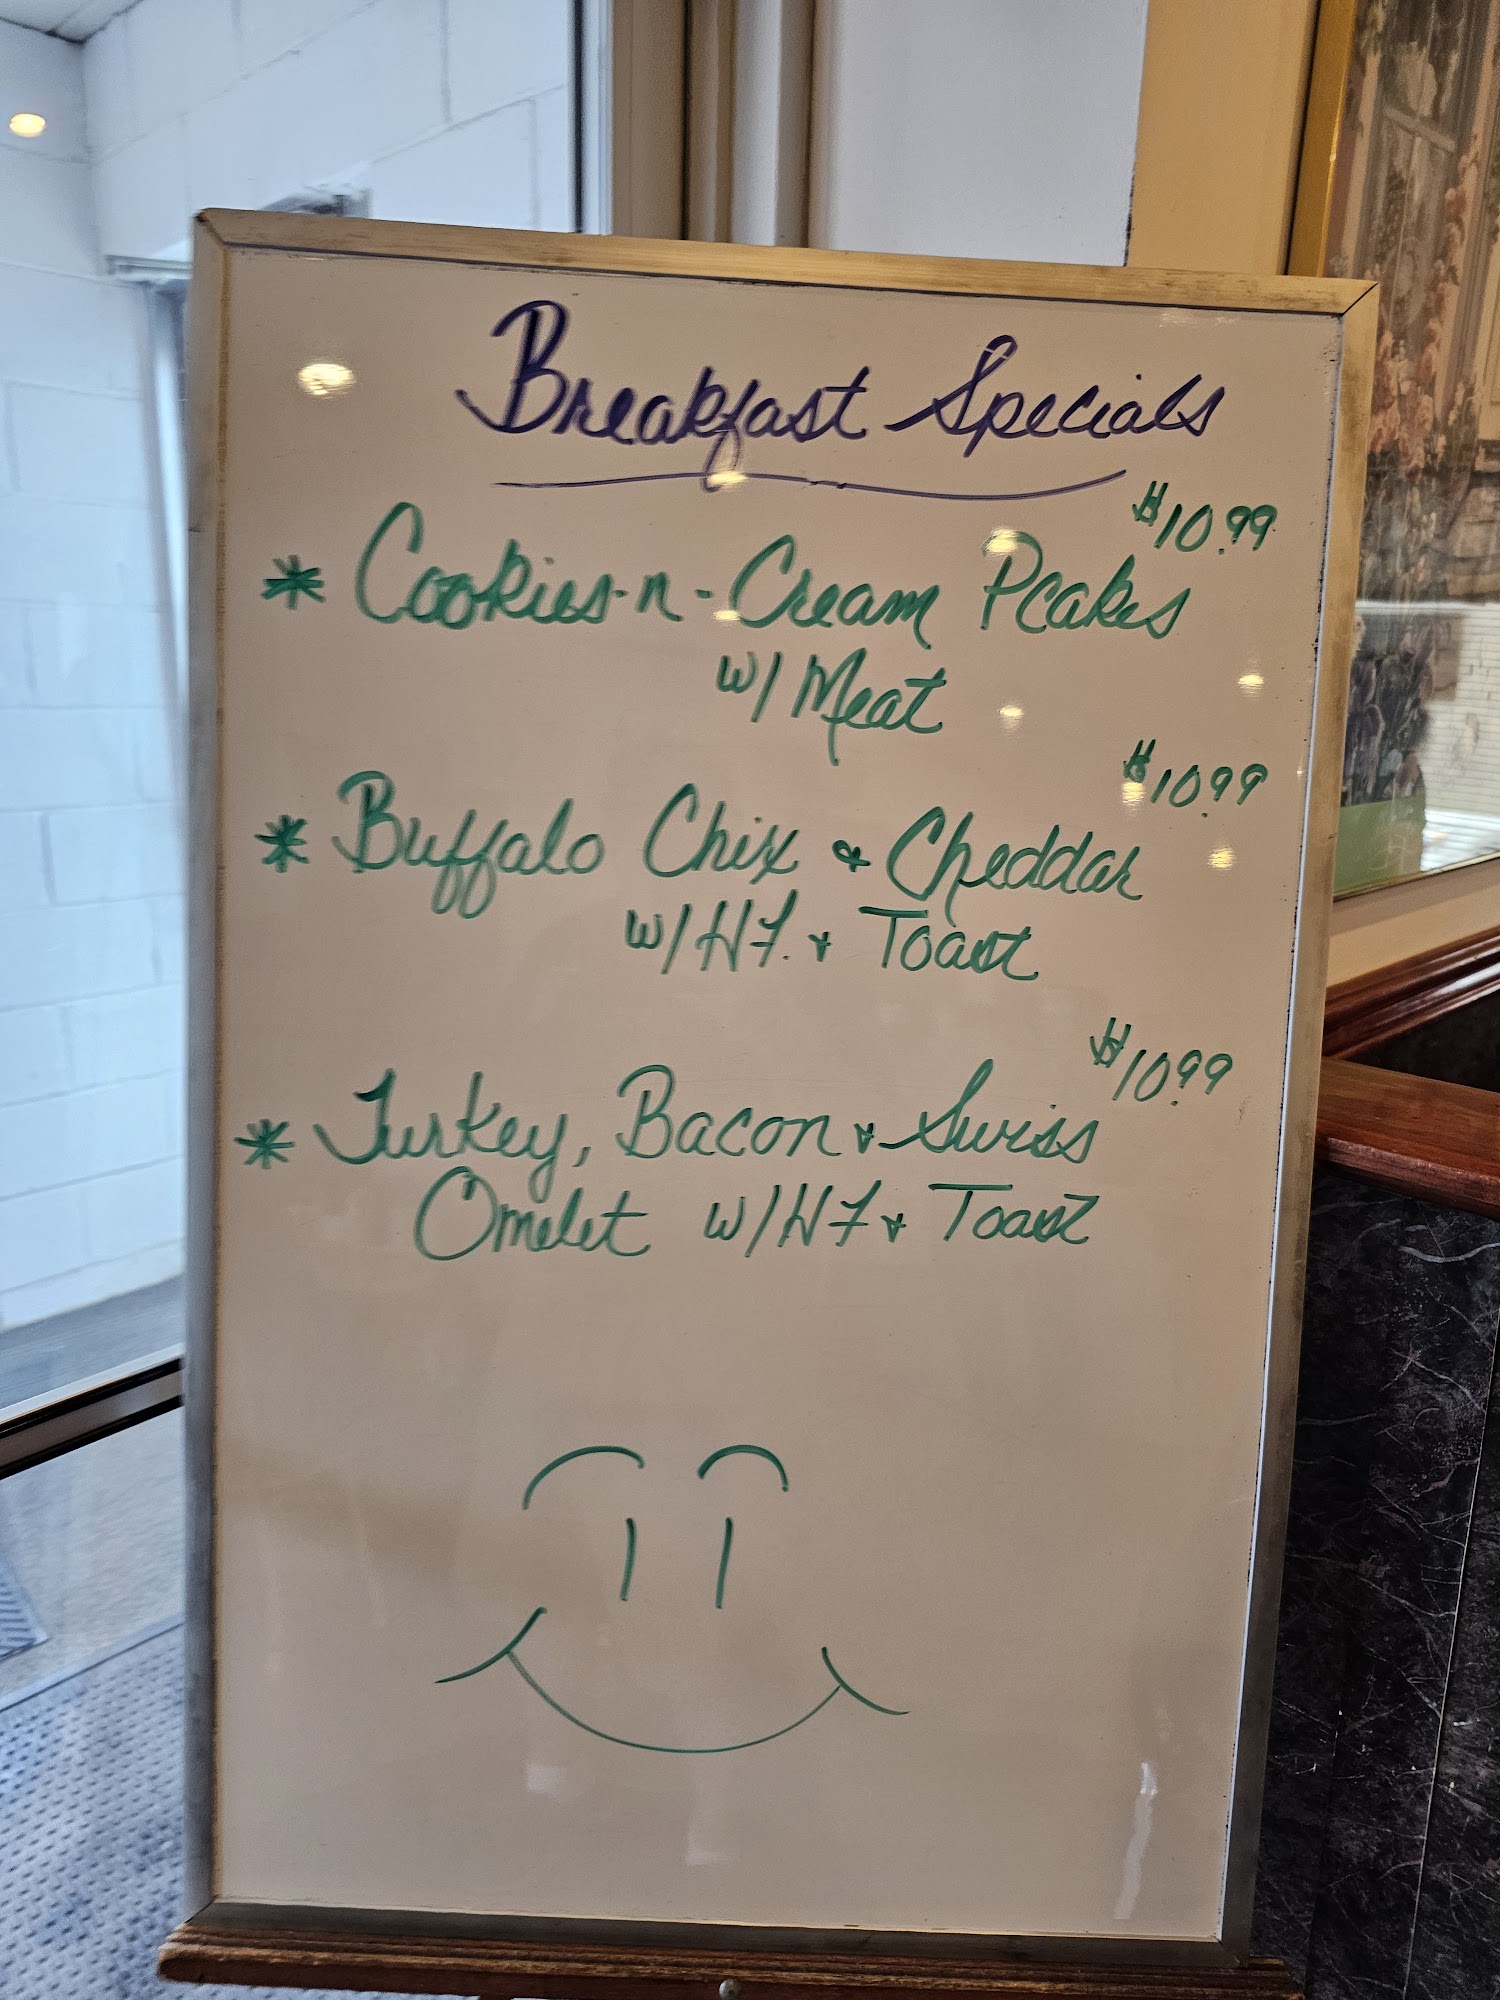 Breakfast Specials
$10.99
* Cookies-n-Cream Pcakes
w/ Meat
$10.99
* Buffalo Chix & Cheddar
w/ HF. & Toast
$10.99
* Turkey, Bacon & Swiss
Omelet w/ HF & Toast